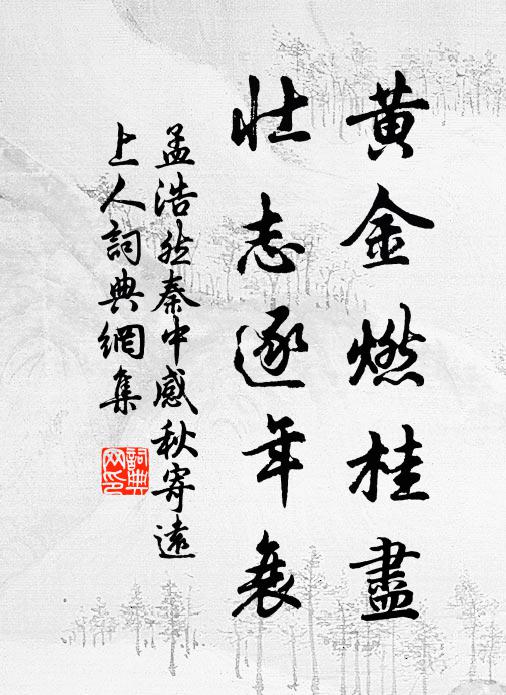 黄金燃桂盡
壯志逐年衰
孟浩然秦中感秋寄遠
上人詞典網集
詞典
网印